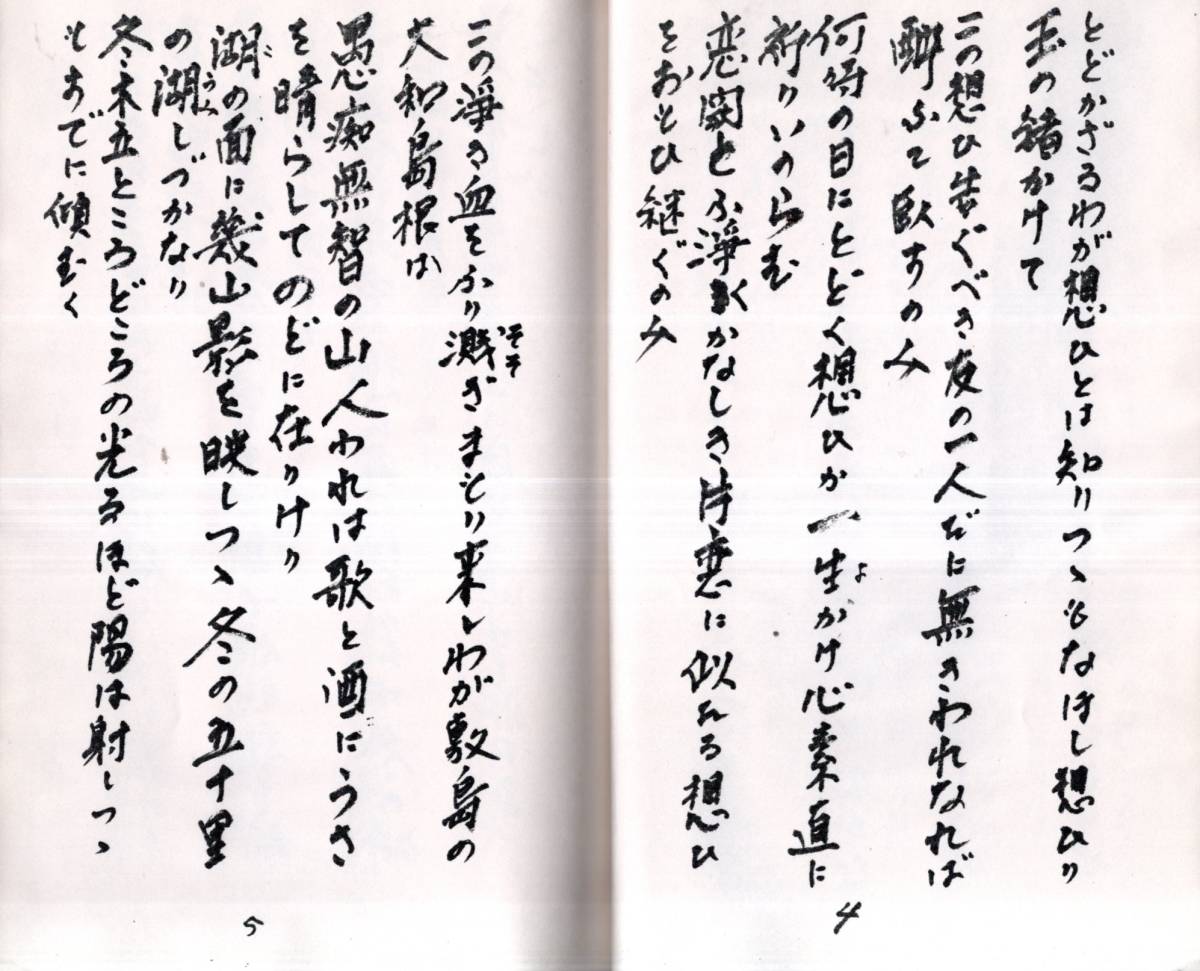 とどかざるわが想ひとは知りつゝもなほし想ひ
玉の緒かけて
この想ひ告ぐべき友の一人だに無きわれなれば
酔ふて臥すのみ
何時の日にとどく想ひか一生かけ心素直に
よ
祈りいのらむ
恋闕とふ淨くかなしき片恋に似たる想ひ
をおもひ継ぐのみ
4
この淨き血をふり濺ぎまもり来しわが敷島の
そそ
大和島根は
愚痴無智の山人われは歌と酒にうさ
を晴らしてのどに在りけり
湖の面に幾山影を映しつゝ冬の五十里
の湖しづかなり
冬木立ところどころの光るほど陽は射しつゝ
もすでに傾むく
5